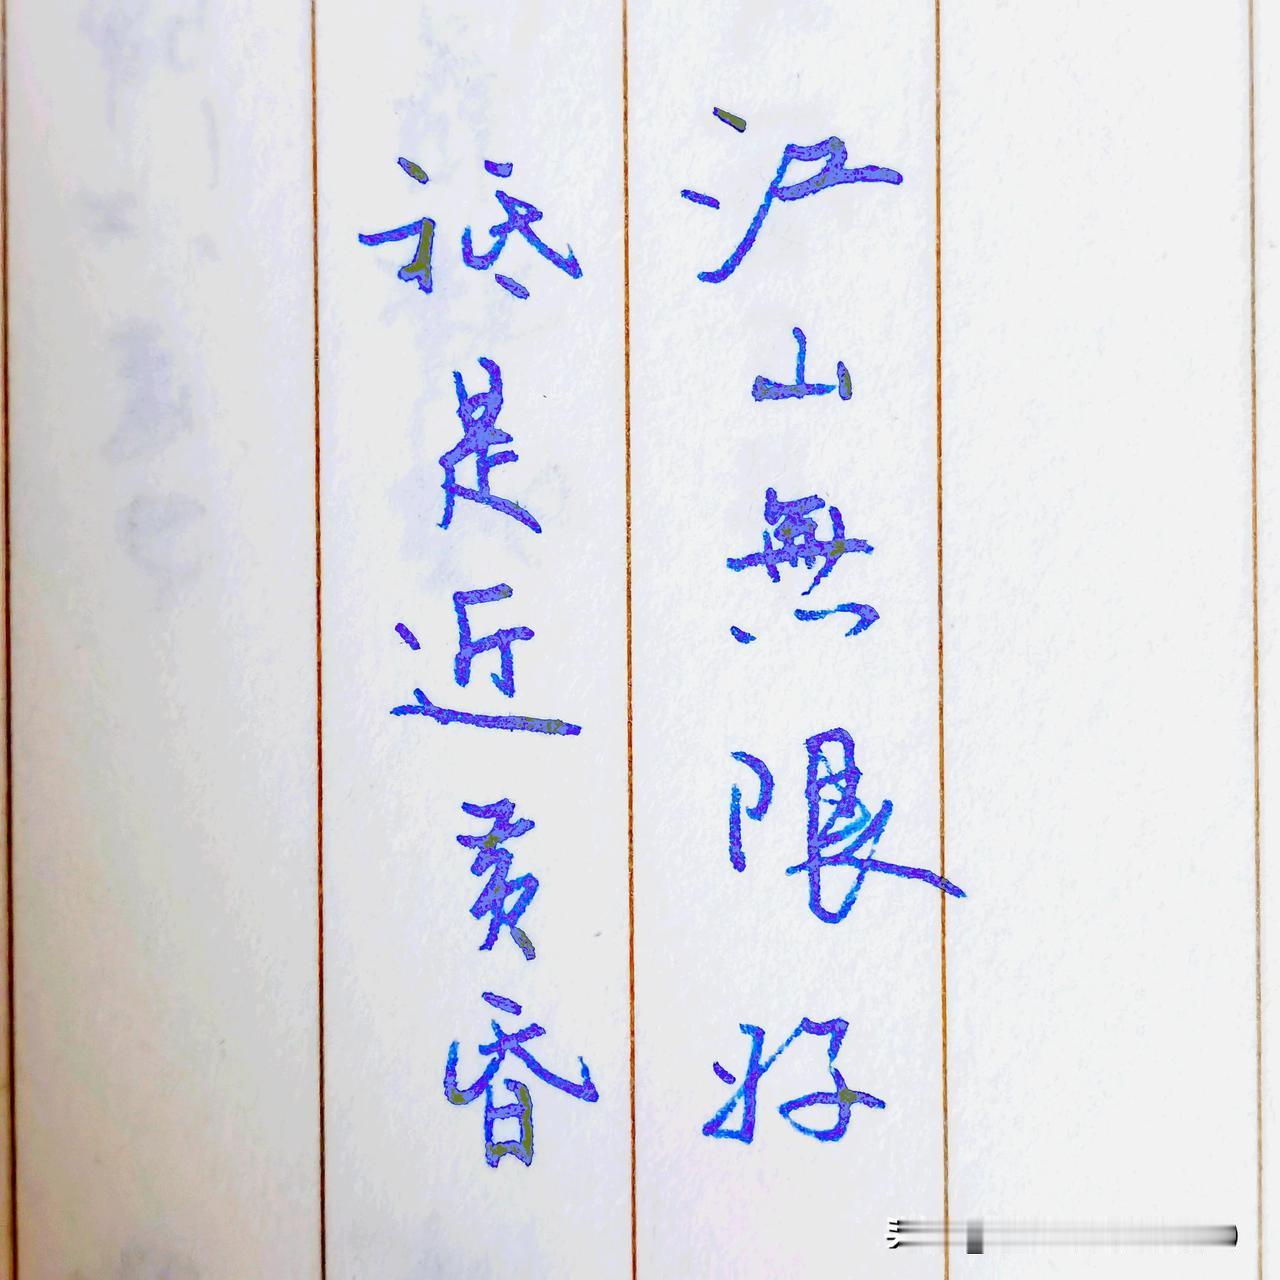 江山無限好
祗是近黄昏